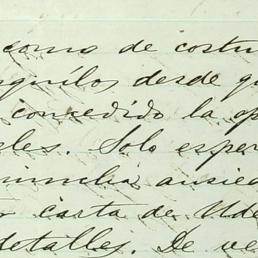 como de costu
nquilos desde qu
concedido la op
eles. Solo esper
milia ansied
carta de Ude
detalles. De ve